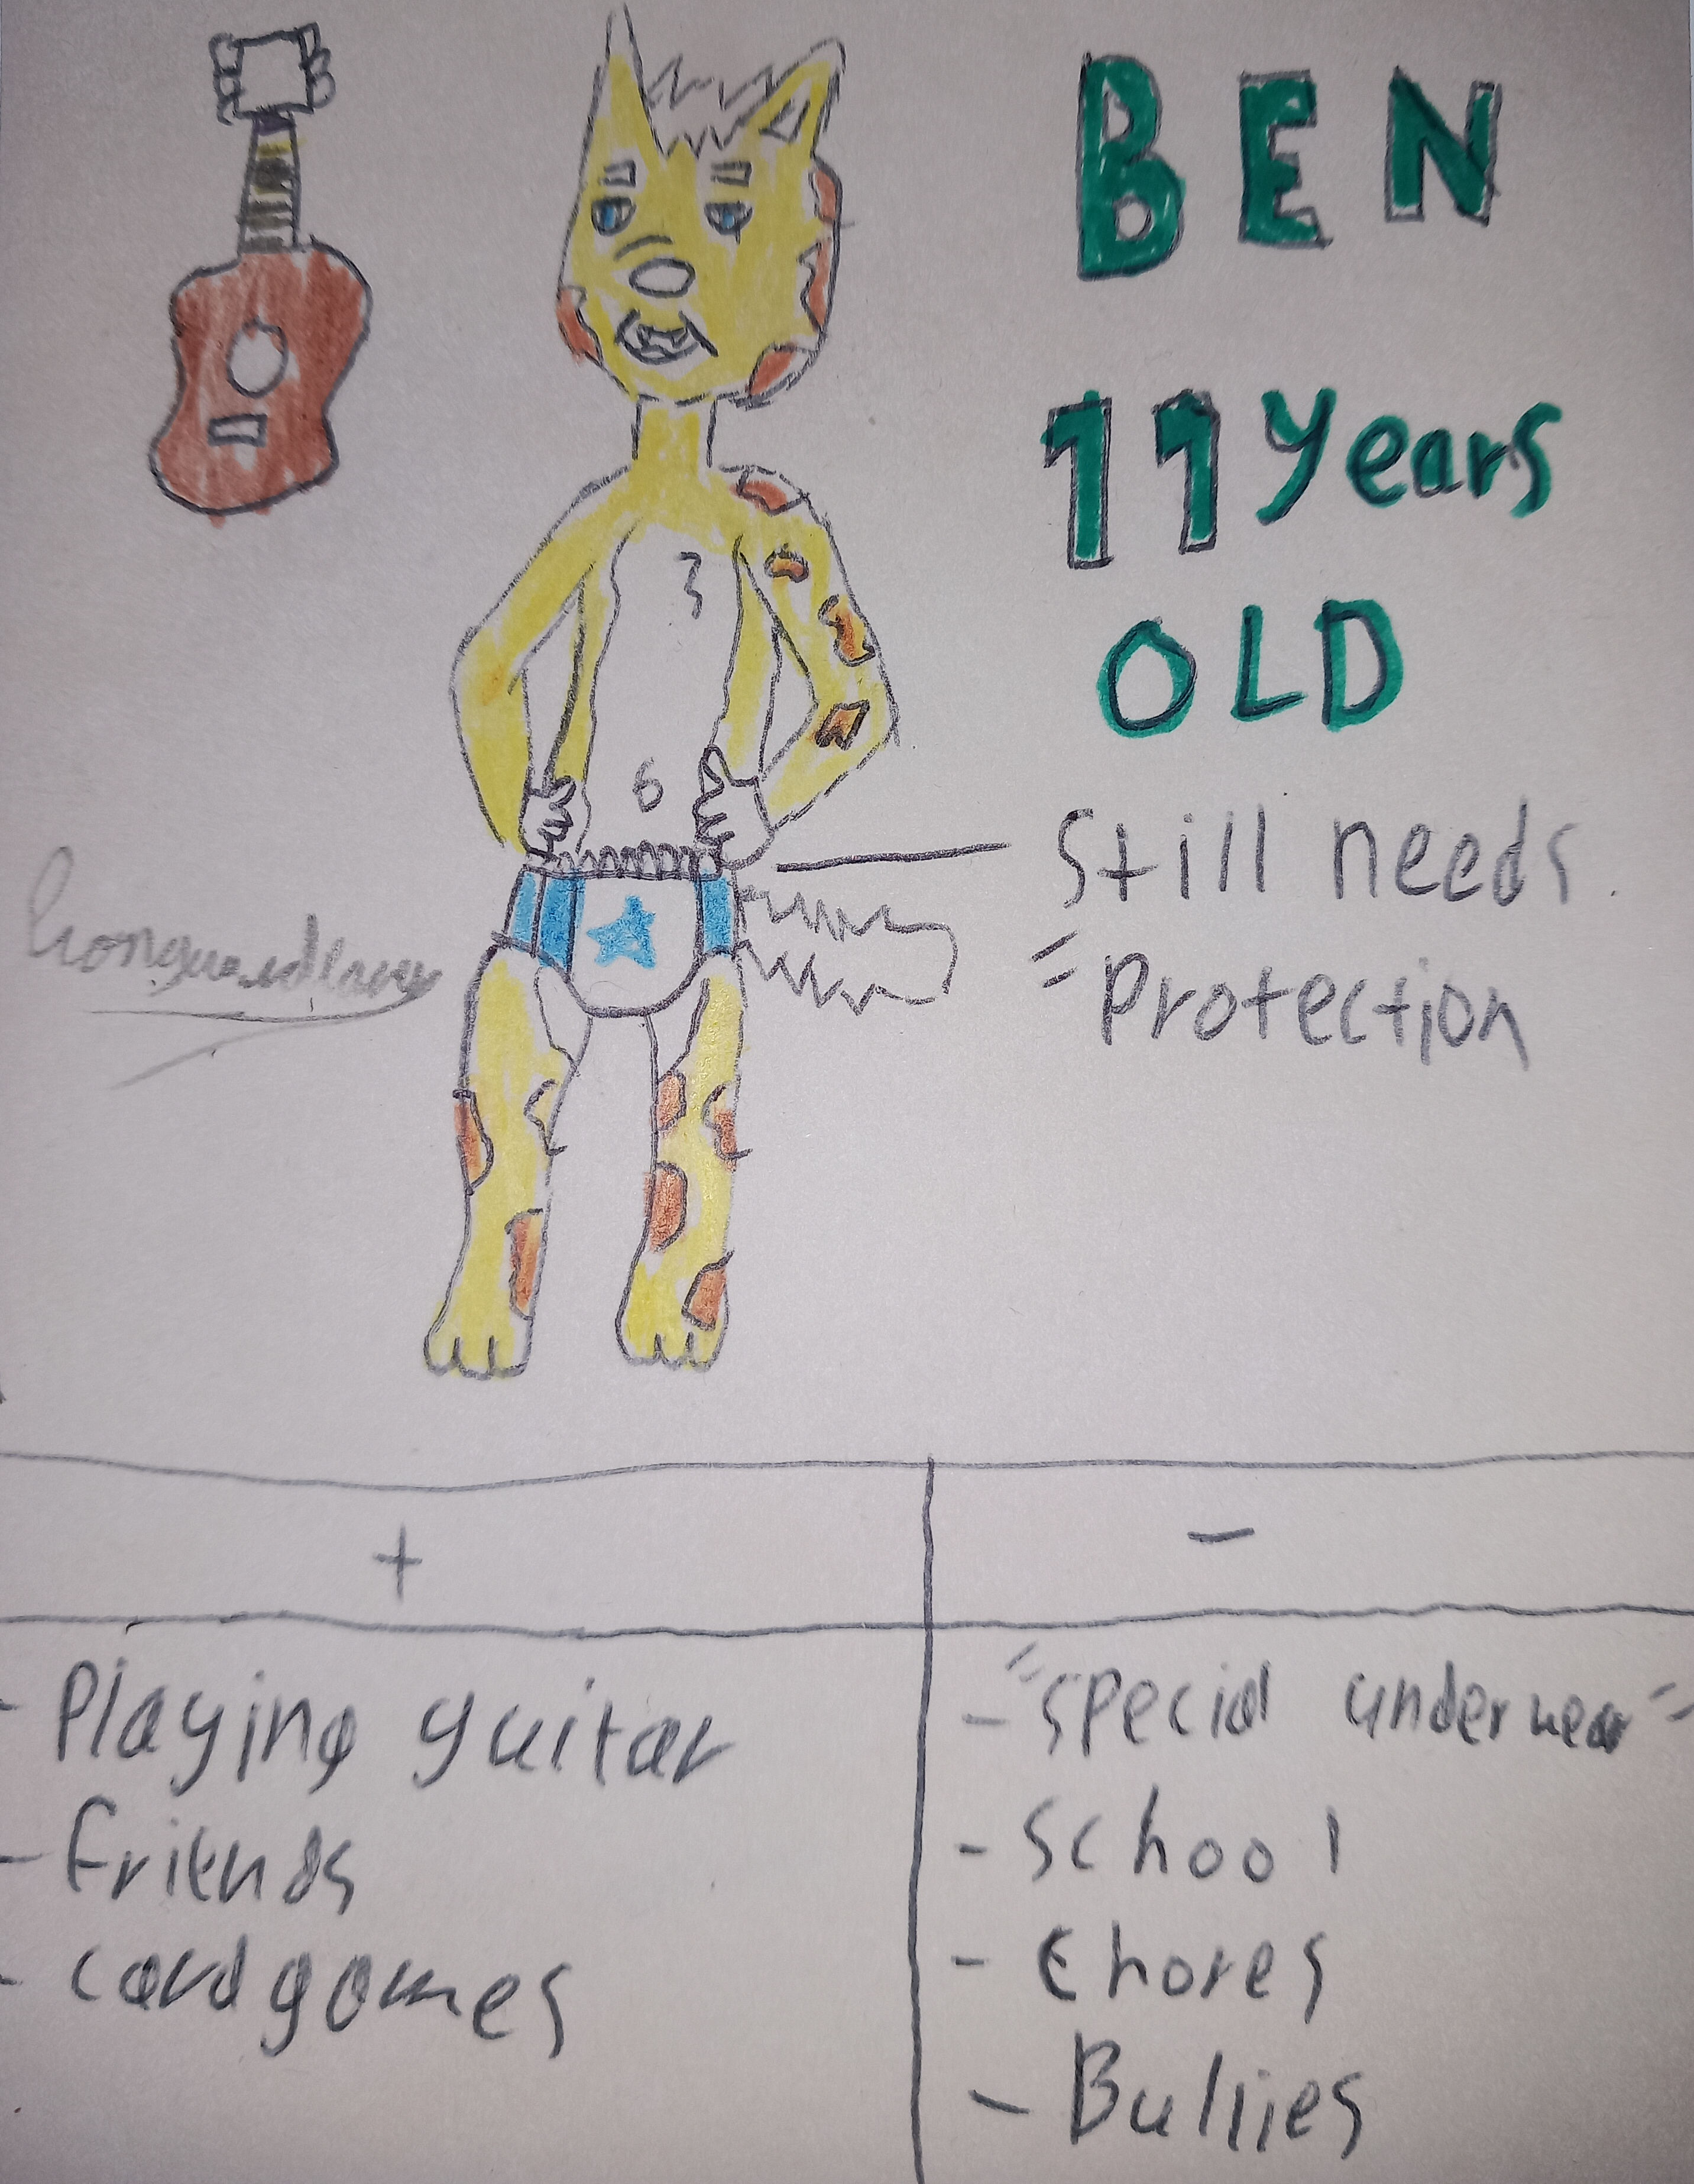 BEN
11 years
OLD
3
6
Still needs
"Protection
+
-
- Playing guitar
- friends
- cardgames
- "special underwear"
- School
- chores
- Bullies